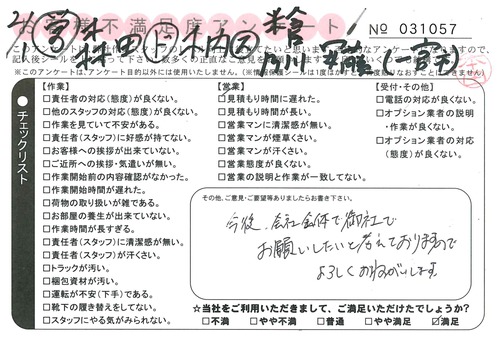 お客様不満足度アンケート
№ 031057
※このアンケートは、アンケート目的以外には使用いたしません。
チェックリスト
【作業】
□責任者の対応(態度)が良くない。
□他のスタッフの対応(態度)が良くない。
□作業を見ていて不安がある。
□責任者(スタッフ)に好感が持てない。
□お客様への挨拶が出来ていない。
□ご近所への挨拶・気遣いが無い。
□作業開始前の内容確認がなかった。
□作業開始時間が遅れた。
□荷物の取り扱いが雑である。
□お部屋の養生が出来ていない。
□作業時間が長すぎる。
□責任者(スタッフ)に清潔感が無い。
□責任者(スタッフ)が汗くさい。
□トラックが汚い。
□梱包資材が汚い。
□運転が不安(下手)である。
□靴下の履き替えをしてない。
□スタッフにやる気がみられない。
【営業】
□見積もり時間に遅れた。
□見積もり時間が長い。
□営業マンに清潔感が無い。
□営業マンが煙草くさい。
□営業マンが汗くさい。
□営業態度が良くない。
□営業の説明と作業が一致してない。
【受付・その他】
□電話の対応が良くない。
□オプション業者の説明・作業が良くない。
□オプション業者の対応(態度)が良くない。
その他、ご意見・ご要望等ありましたらお書き下さい。
今後、会社全体で御社で
お願いしたいと考えておりますので
よろしくおねがいします
☆当社をご利用いただきまして、ご満足いただけたでしょうか?
□不満 □やや不満 □普通 □やや満足 ☑満足